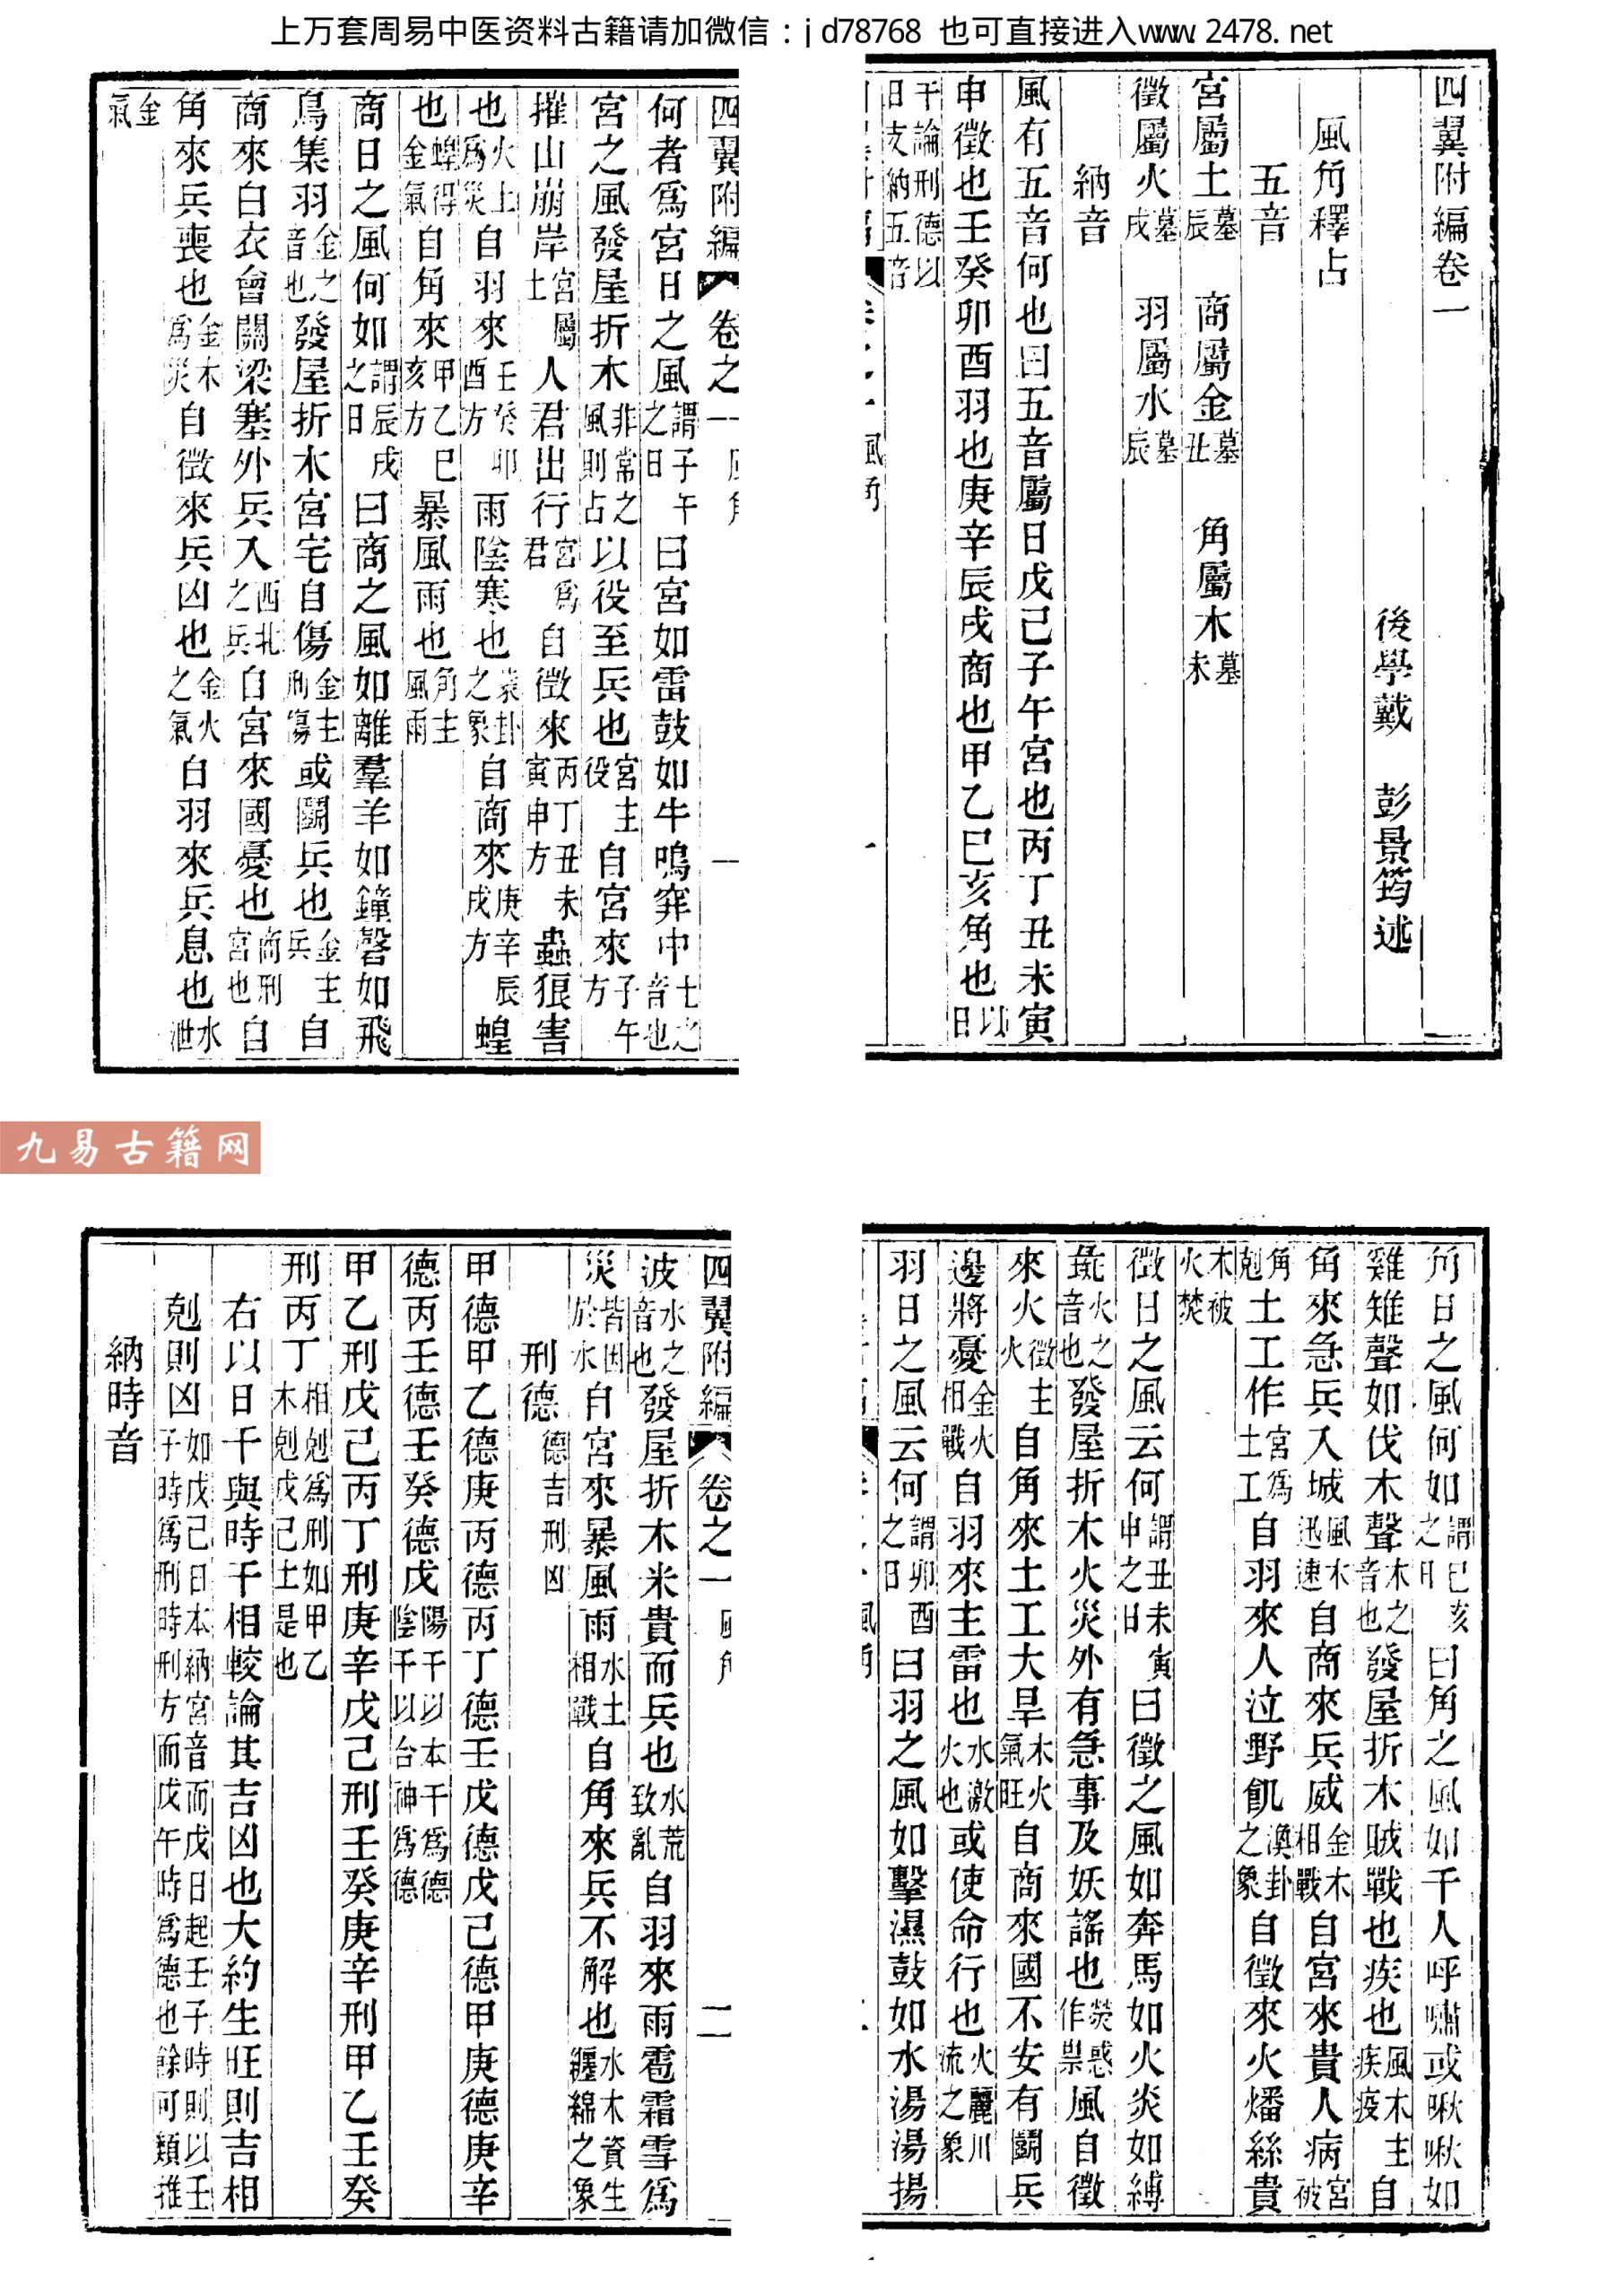 上万套周易中医资料古籍请加微信：jd78768 也可直接进入www.2478.net
四翼附編卷一
後學戴 彭景筠述
風角釋占
五音
宮屬土墓辰 商屬金墓丑 角屬木墓未
徵屬火墓戌 羽屬水墓辰
納音
風有五音何也曰五音屬日戊己子午宮也丙丁丑未寅
申徵也壬癸卯酉羽也庚辛辰戌商也甲乙巳亥角也以日
干論刑德以日支納五音
四翼附編 卷之一 風角 一
何者爲宮日之風謂子午之日曰宮如雷鼓如牛鳴窌中土之音也
宮之風發屋折木非常之風則占以役至兵也宮主役自宮來子午方
摧山崩岸宮屬土人君出行宮爲君自徵來丙丁丑未寅申方蟲狼害
也火上爲災自羽來壬癸卯酉方雨陰寒也蒙卦之象自商來庚辛辰戌方蝗
也蝗得金氣自角來甲乙巳亥方暴風雨也角主風雨
商日之風何如謂辰戌之日曰商之風如離羣羊如鐘磬如飛
鳥集羽金之音也發屋折木宮宅自傷金主刑傷或鬭兵也金主兵自
商來白衣會關梁塞外兵入西北之兵自宮來國憂也商刑宮也自
角來兵喪也金木爲災自徵來兵凶也金火之氣自羽來兵息也水泄
金氣
角日之風何如謂巳亥之日曰角之風如千人呼嘯或啾啾如
雞雉聲如伐木聲木之音也發屋折木賊戰也疾也風木主疾疫自
角來急兵入城風木迅速自商來兵威金木相戰自宮來貴人病宮被
角剋土工作宮爲土工自羽來人泣野飢渙卦之象自徵來火燔絲貴
木被火焚
徵日之風云何謂丑未寅申之日曰徵之風如奔馬如火炎如縛
彘火之音也發屋折木火災外有急事及妖謠也熒惑作祟風自徵
來火徵主火自角來土工大旱木火氣旺自商來國不安有鬭兵
邊將憂金火相戰自羽來主雷也水激火也或使命行也火麗川流之象
羽日之風云何謂卯酉之日曰羽之風如擊濕鼓如水湯湯揚
四翼附編 卷之一 風角 二
波水之音也發屋折木米貴而兵也水荒致亂自羽來雨雹霜雪爲
災皆因於水自宮來暴風雨水土相戰自角來兵不解也水木資生纏綿之象
刑德德吉刑凶
甲德甲乙德庚丙德丙丁德壬戊德戊己德甲庚德庚辛
德丙壬德壬癸德戊陽干以本干爲德陰干以合神爲德
甲乙刑戊己丙丁刑庚辛戊己刑壬癸庚辛刑甲乙壬癸
刑丙丁相剋爲刑如甲乙木剋戊己土是也
右以日干與時干相較論其吉凶也大約生旺則吉相
剋則凶如戊己日本納宮音而戊日起壬子時則以壬子時爲刑時刑方而戊午時爲德也餘可類推
納時音
九易古籍网